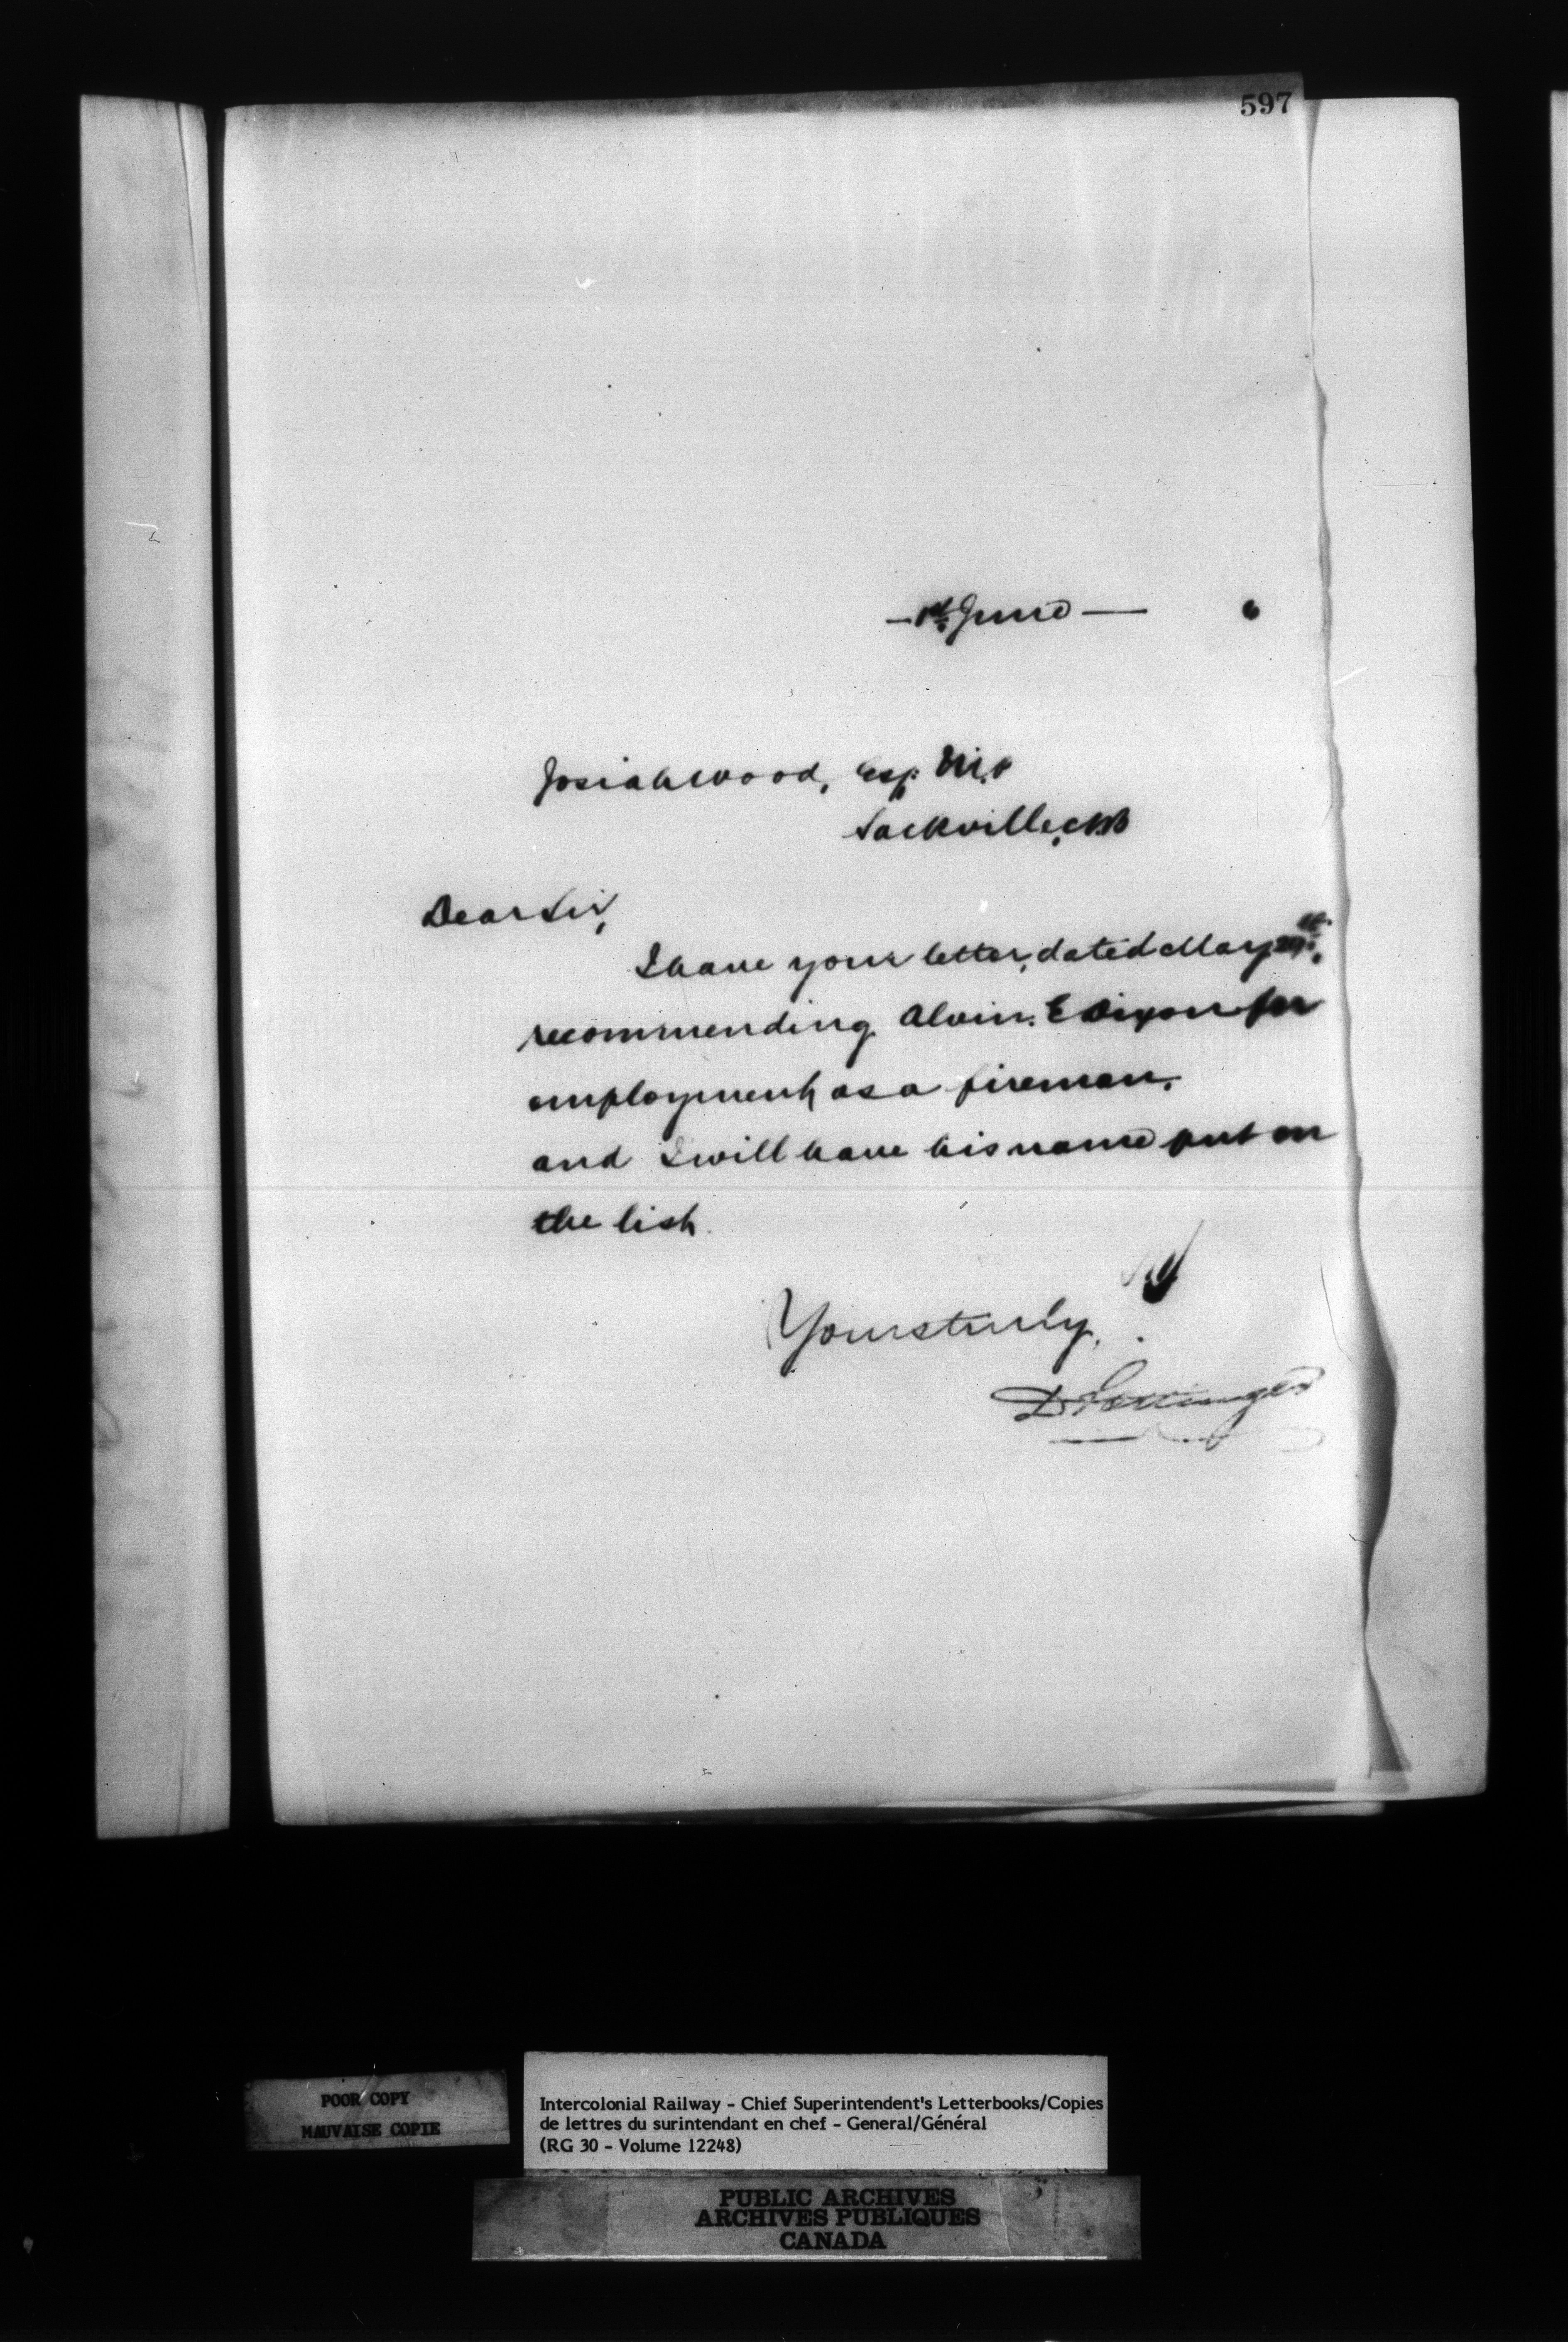 597
— 1st June — 6
Josiah Wood, Esq. M.P
Sackville, NB
Dear Sir,
I have your letter, dated May
recommending Alvin. E Dixon for
employment as a fireman.
and I will have his name put on
the list.
Yours truly,
D Pottinger
POOR COPY
MAUVAISE COPIE
Intercolonial Railway - Chief Superintendent's Letterbooks/Copies
de lettres du surintendant en chef - General/Général
(RG 30 - Volume 12248)
PUBLIC ARCHIVES
ARCHIVES PUBLIQUES
CANADA